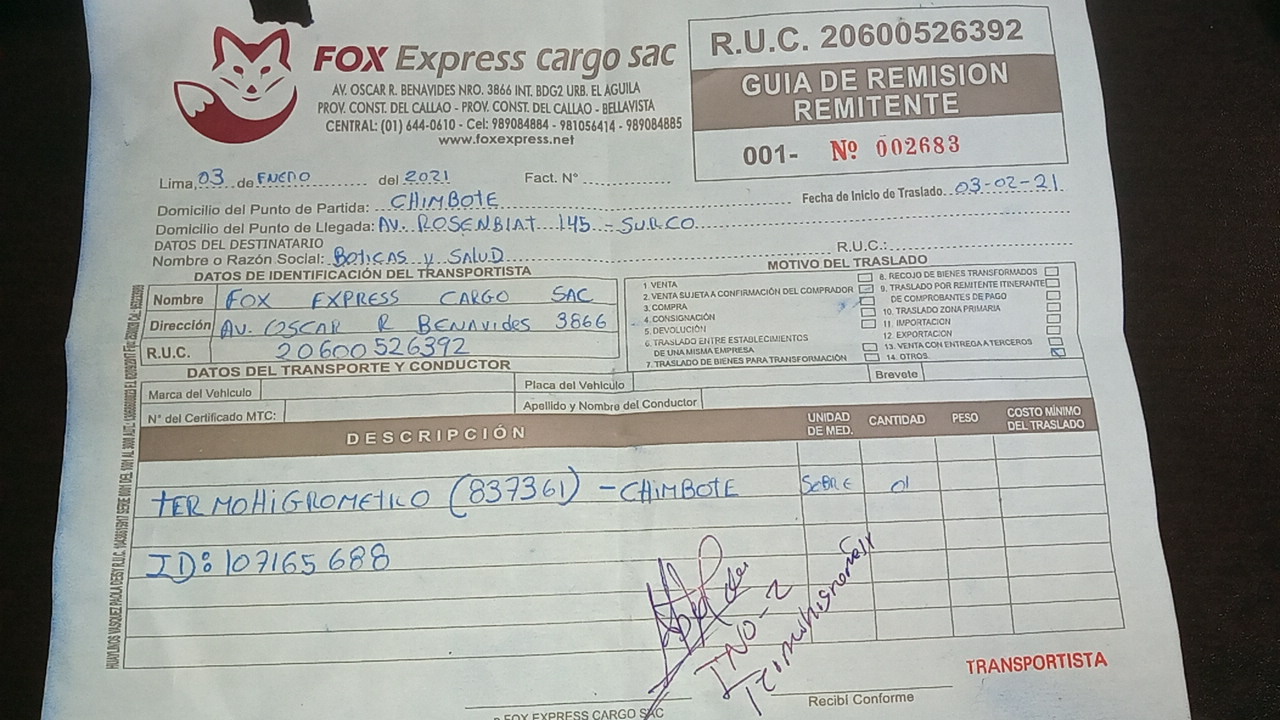 FOX Express cargo sac
AV. OSCAR R. BENAVIDES NRO. 3866 INT. BDG2 URB. EL AGUILA
PROV. CONST. DEL CALLAO - PROV. CONST. DEL CALLAO - BELLAVISTA
CENTRAL: (01) 644-0610 - Cel: 989084884 - 981056414 - 989084885
www.foxexpress.net
R.U.C. 20600526392
GUIA DE REMISION
REMITENTE
001- Nº 002683
Lima, 03 de ENERO del 2021 Fact. N°
Fecha de Inicio de Traslado 03-02-21
Domicilio del Punto de Partida: CHIMBOTE
Domicilio del Punto de Llegada: AV. ROSENBLAT 145 - SURCO
DATOS DEL DESTINATARIO
Nombre o Razón Social: BOTICAS Y SALUD R.U.C.:
DATOS DE IDENTIFICACIÓN DEL TRANSPORTISTA
Nombre FOX EXPRESS CARGO SAC
Dirección AV. OSCAR R BENAVIDES 3866
R.U.C. 20600526392
MOTIVO DEL TRASLADO
1 VENTA
2. VENTA SUJETA A CONFIRMACIÓN DEL COMPRADOR
3. COMPRA
4. CONSIGNACIÓN
5. DEVOLUCIÓN
6. TRASLADO ENTRE ESTABLECIMIENTOS
DE UNA MISMA EMPRESA
7. TRASLADO DE BIENES PARA TRANSFORMACIÓN
8. RECOJO DE BIENES TRANSFORMADOS
9. TRASLADO POR REMITENTE ITINERANTE
DE COMPROBANTES DE PAGO
10. TRASLADO ZONA PRIMARIA
11. IMPORTACION
12. EXPORTACION
13. VENTA CON ENTREGA A TERCEROS
14. OTROS
DATOS DEL TRANSPORTE Y CONDUCTOR
Marca del Vehículo Placa del Vehículo Brevete
N° del Certificado MTC: Apellido y Nombre del Conductor
DESCRIPCIÓN UNIDAD DE MED. CANTIDAD PESO COSTO MÍNIMO DEL TRASLADO
TERMOHIGROMETICO (837361) - CHIMBOTE SOBRE 01
ID: 107165688
INO-2
TRANSPORTISTA
FOX EXPRESS CARGO SAC
Recibí Conforme